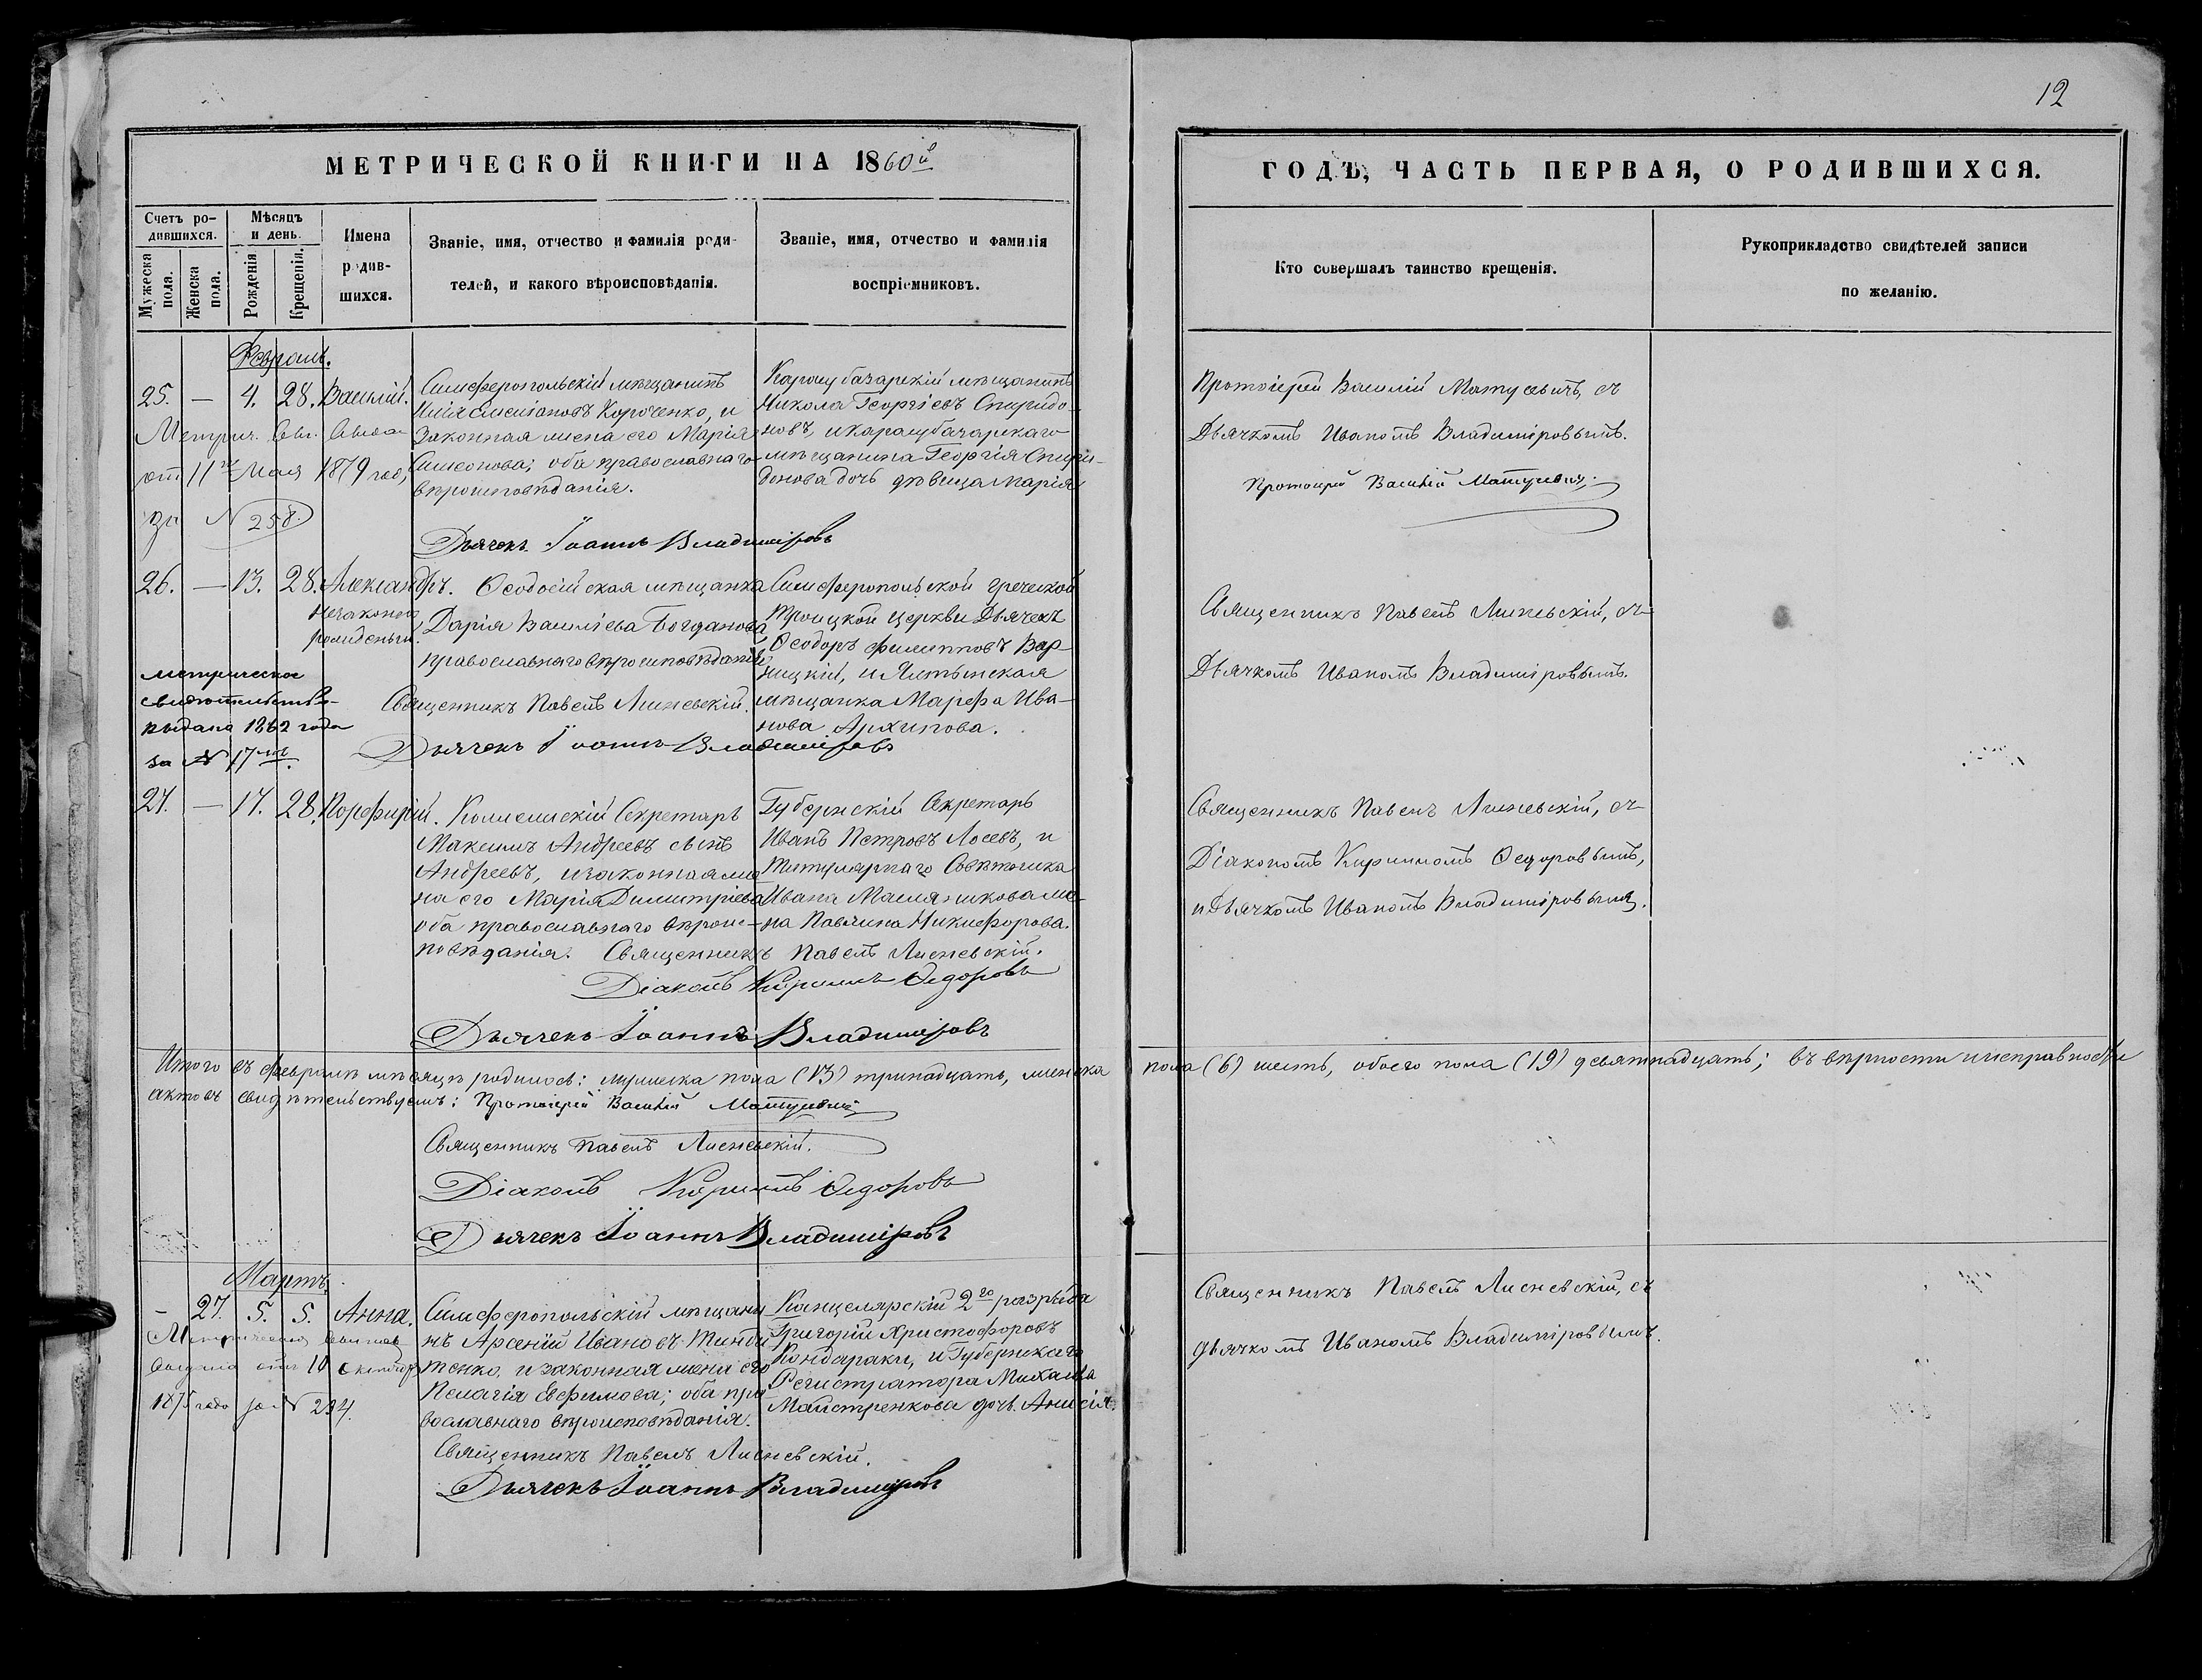 12
МЕТРИЧЕСКОЙ КНИГИ НА 1860й
ГОДЪ, ЧАСТЬ ПЕРВАЯ, О РОДИВШИХСЯ.
Счетъ ро-
дившихся.
Мужеска пола.
Женска пола.
Мѣсяцъ
и день.
Рожденія
Крещенія.
Имена
родив-
шихся.
Званіе, имя, отчество и фамилія роди-
телей, и какого вѣроисповѣданія.
Званіе, имя, отчество и фамилія
воспріемниковъ.
Кто совершалъ таинство крещенія.
Рукоприкладство свидѣтелей записи
по желанію.
Февраль.
25. — 4. 28. Василій.
Метрич. Свид.
отъ 11го Мая 1879 года,
за N 258.
Симферопольскій мѣщанинъ
Короченко, и
законная жена его Марія
Симеонова; оба православнаго
вѣроисповѣданія.
Карасубазарскій мѣщанинъ
Никола Георгіевъ Спиридо-
новъ, и карасубазарскаго
мѣщанина Георгія Спири-
донова дочь дѣвица Марія.
Дьячекъ Іоаннъ Владиміровъ
Протоіерей Василій Матусевичъ, съ
Дьячкомъ Иваномъ Владиміровымъ.
Протоіерей Василій Матусевичъ.
26. — 13. 28. Александръ.
незаконно
рожденный.
метрическое
свидѣтельство
выдано 1862 года
за N 17мъ.
Ѳеодосійская мѣщанка
Дарія Василіева Богданова
православнаго вѣроисповѣданія.
Симферопольской греческой
Троицкой церкви Дьячекъ
Ѳеодоръ Филипповъ Вар-
ницкій, и Ялтынская
мѣщанка Марфа Ива-
нова Архипова.
Священникъ Павелъ Лисневскій.
Дьячекъ Іоаннъ Владиміровъ
Священникъ Павелъ Лисневскій, съ
Дьячкомъ Иваномъ Владиміровымъ.
27. — 17. 28. Порфирій.
Коллежскій Секретарь
Максимъ Андреевъ сынъ
Андреевъ, и законная же-
на его Марія Димитріева
оба православнаго вѣроис-
повѣданія.
Губернскій Секретарь
Иванъ Петровъ Лосевъ, и
Титулярнаго Совѣтника
Ивана Масляникова же-
на Павлина Никифорова.
Священникъ Павелъ Лисневскій.
Діаконъ Кириллъ Ѳедоровъ
Дьячекъ Іоаннъ Владиміровъ
Священникъ Павелъ Лисневскій, съ
Діакономъ Кирилломъ Ѳедоровымъ,
и Дьячкомъ Иваномъ Владиміровымъ.
Итого въ февралѣ мѣсяцѣ родилось: мужеска пола (13) тринадцать, женска пола (6) шесть, обоего пола (19) девятнадцать; въ вѣрности и исправности
актовъ свидѣтельствуемъ: Протоіерей Василій Матусевичъ
Священникъ Павелъ Лисневскій.
Діаконъ Кириллъ Ѳедоровъ
Дьячекъ Іоаннъ Владиміровъ
Мартъ.
— 27. 5. 5. Анна.
Метрическое
выдано отъ 10
1875 года за N 234.
Симферопольскій мѣщани-
нъ Арсеній Ивановъ
тенко, и законная жена его
Пелагія Евфимова; оба пра-
вославнаго вѣроисповѣданія.
Канцелярскій 2го разряда
Григорій Христофоровъ
Кондараки, и Губернскаго
Регистратора Михаила
Майстренкова дочь Анисія.
Священникъ Павелъ Лисневскій.
Дьячекъ Іоаннъ Владиміровъ
Священникъ Павелъ Лисневскій, съ
дьячкомъ Иваномъ Владиміровымъ.